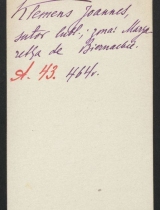 Klemens Joannes,
sutor lubl.; żona: Marga
retha de Biernackie.
A. 43. 464v.